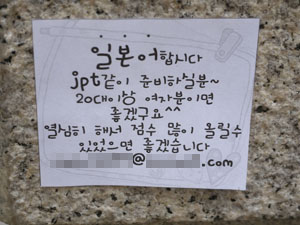 일본어합시다
jpt같이 준비하실분~
20대이상 여자분이면
좋겠구요^^
열심히 해서 점수 많이 올릴수
있었으면 좋겠습니다
@ .com